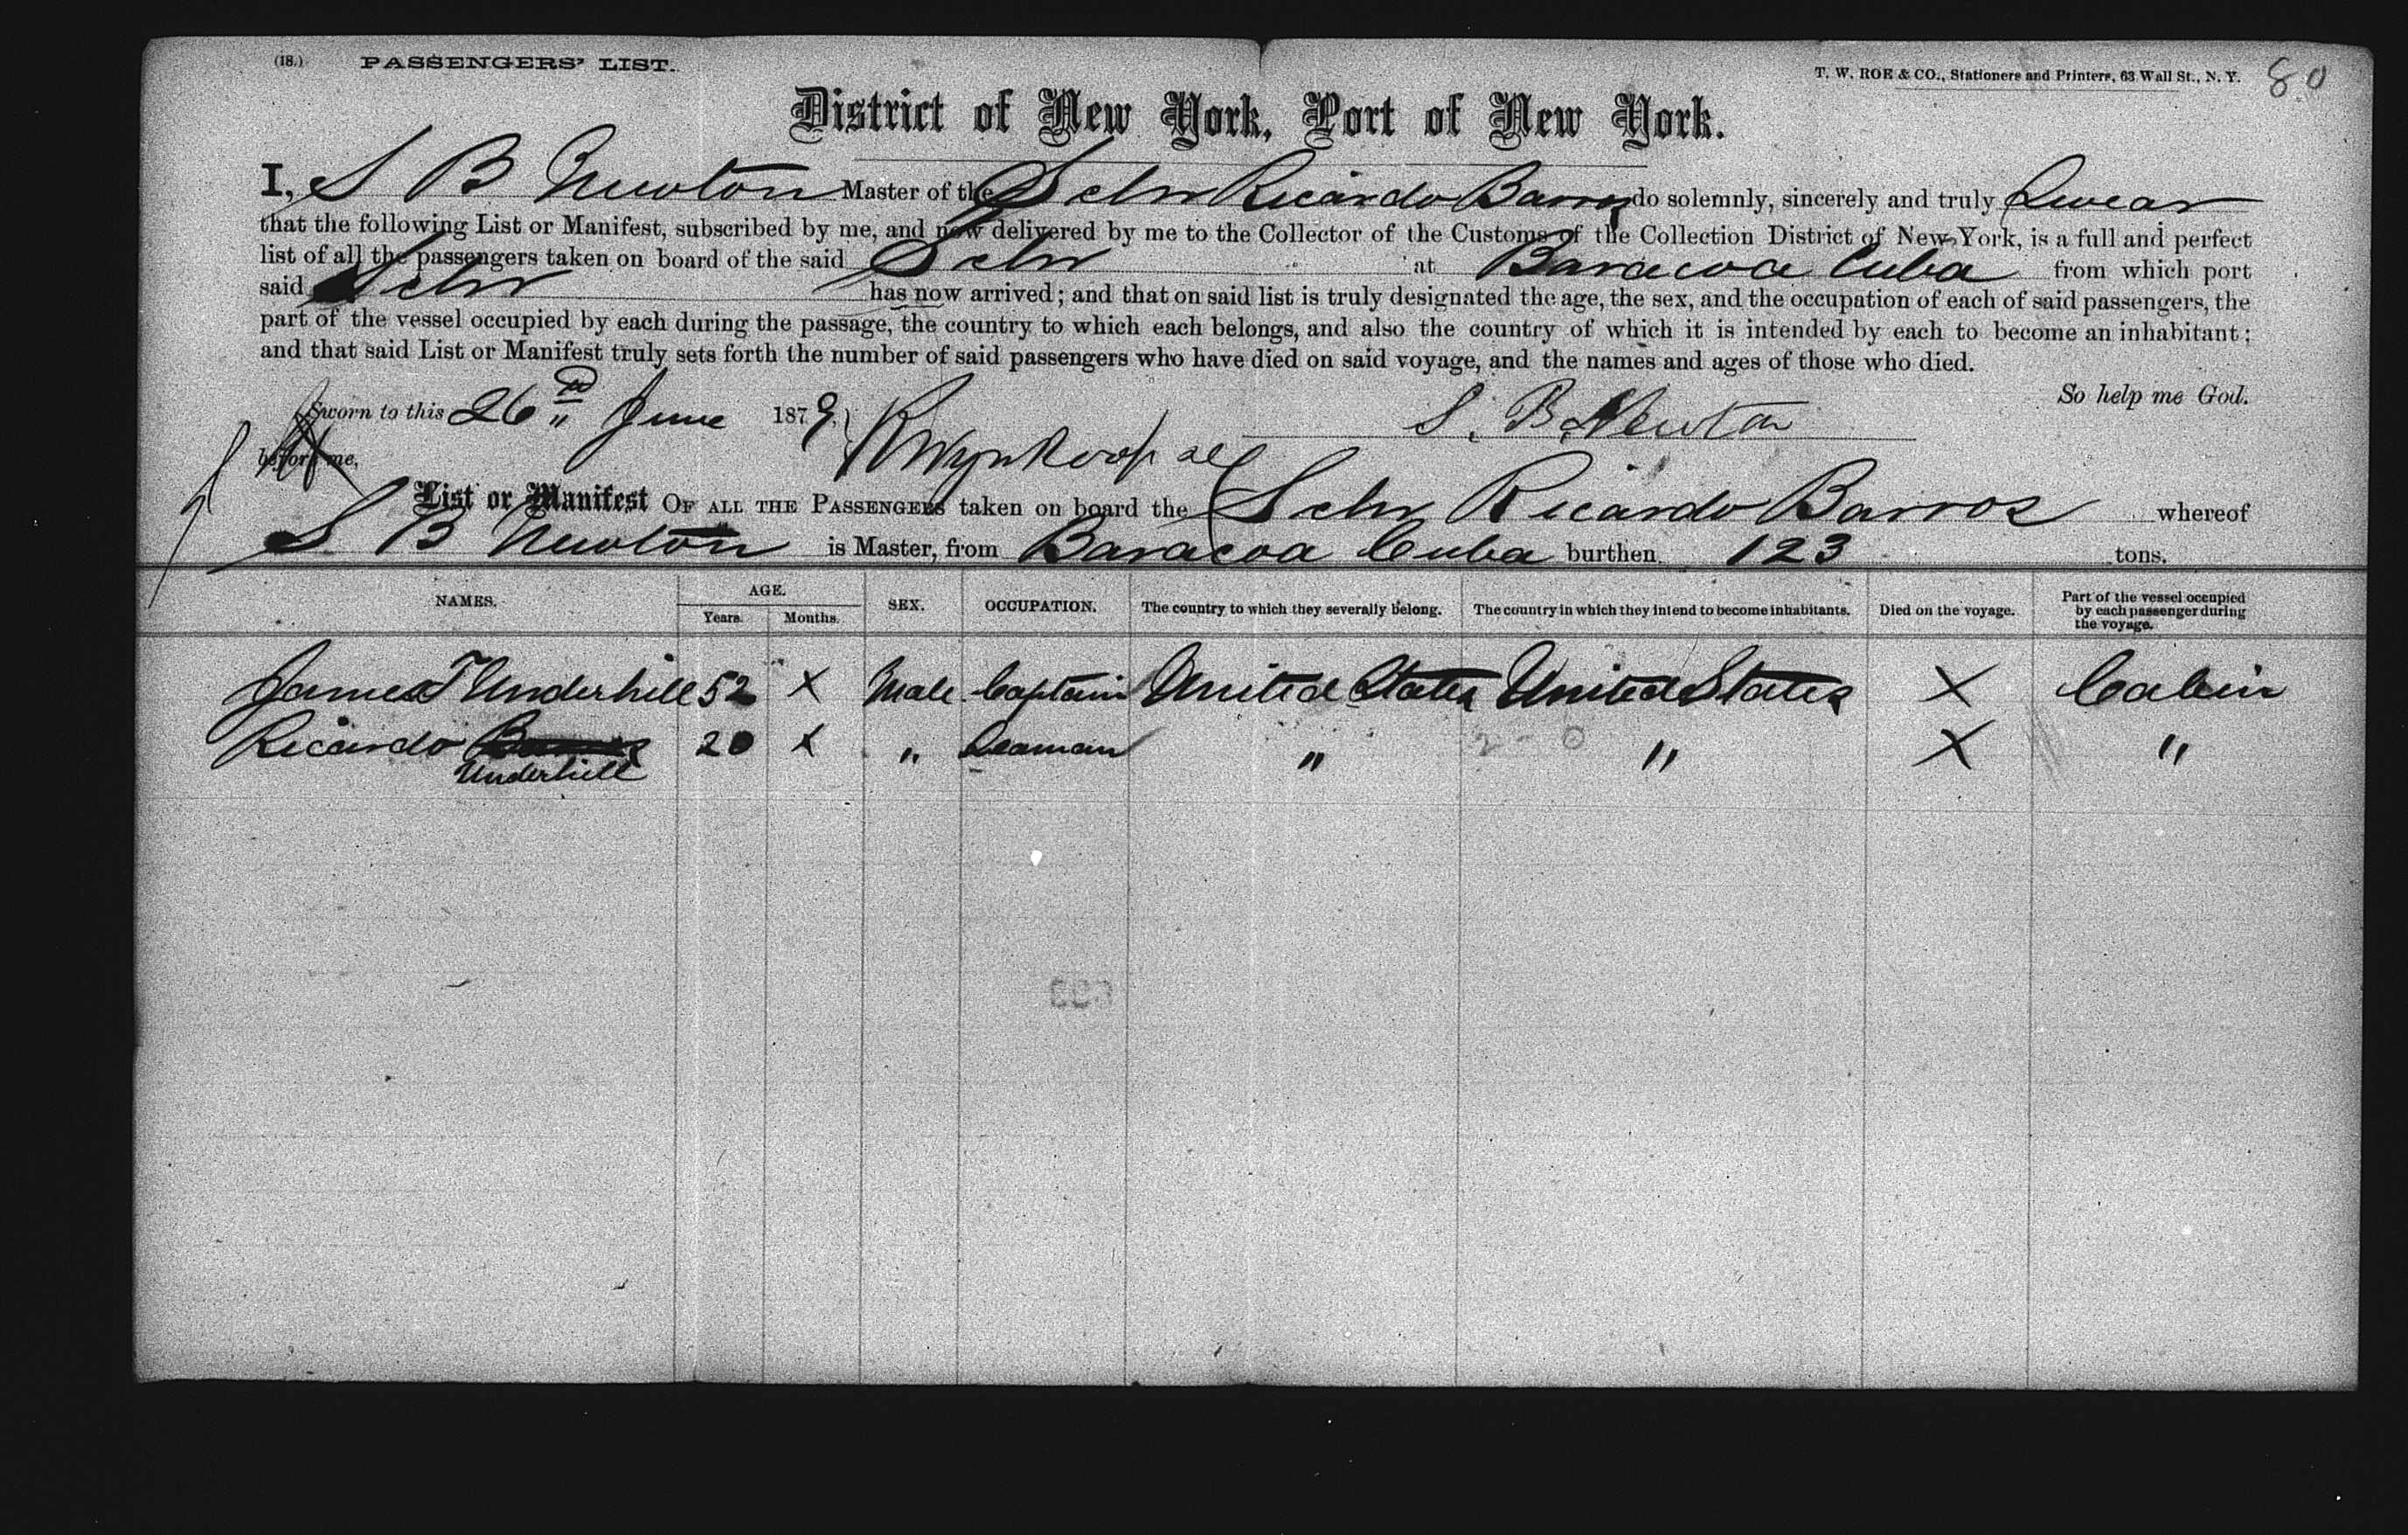 (18.) PASSENGERS' LIST. T. W. ROE & CO., Stationers and Printers, 63 Wall St., N. Y. 80
District of New York, Port of New York.
I, S B Newton Master of the Schr Ricardo Barros do solemnly, sincerely and truly Swear
that the following List or Manifest, subscribed by me, and now delivered by me to the Collector of the Customs of the Collection District of New York, is a full and perfect
list of all the passengers taken on board of the said Schr at Baracoa Cuba from which port
said Schr has now arrived; and that on said list is truly designated the age, the sex, and the occupation of each of said passengers, the
part of the vessel occupied by each during the passage, the country to which each belongs, and also the country of which it is intended by each to become an inhabitant;
and that said List or Manifest truly sets forth the number of said passengers who have died on said voyage, and the names and ages of those who died.
So help me God.
Sworn to this 26 June 1879, S. B. Newton
before me, Wynkoop
List or Manifest OF ALL THE PASSENGERS taken on board the Schr Ricardo Barros whereof
S B Newton is Master, from Baracoa Cuba burthen 123 tons.
NAMES. AGE. Years. Months. SEX. OCCUPATION. The country to which they severally belong. The country in which they intend to become inhabitants. Died on the voyage. Part of the vessel occupied by each passenger during the voyage.
James T Underhill 52 X Male Captain United States United States X Cabin
Ricardo Barros 20 X " Seaman " " X "
Underhill